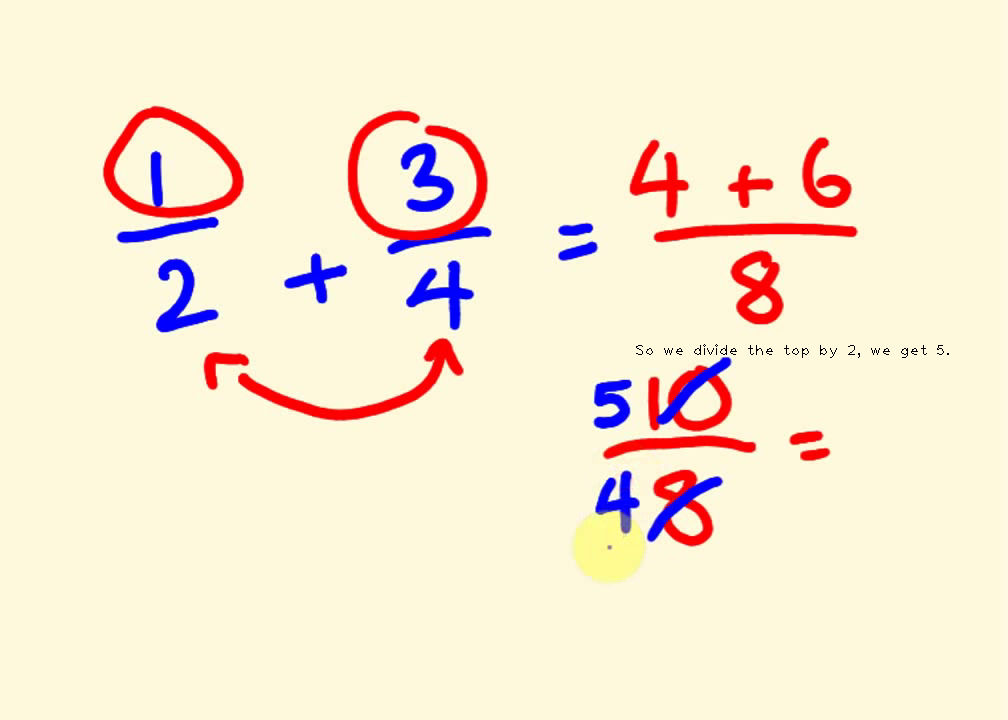 1/2 + 3/4 = 4 + 6/8
So we divide the top by 2, we get 5.
5 10/4 8 =